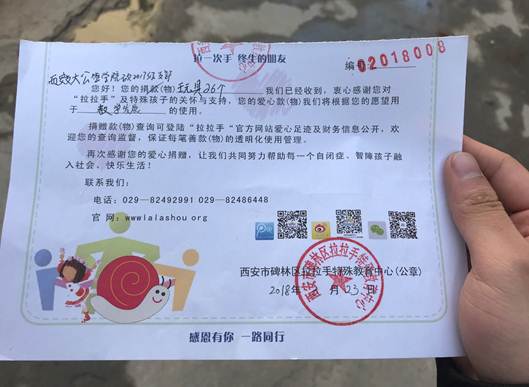 拉一次手 终生的朋友
编号:02018008
您好!您的捐款(物)玩具26个我们已经收到,衷心感谢您对
"拉拉手"及特殊孩子的关怀与支持,您的爱心款(物)我们将根据您的愿望用
于 的使用。
捐赠款(物)查询可登陆"拉拉手"官方网站爱心足迹及财务信息公开,欢
迎您的查询监督,保证每笔善款(物)的透明化使用管理。
再次感谢您的爱心捐赠,让我们共同努力帮助每一个自闭症、智障孩子融
入社会、快乐生活!
联系我们:
电话:029—82492991 029—82486448
官 网:www.lalashou.org
西安市碑林区拉拉手特殊教育中心(公章)
2018年 月03日
感恩有你 一路同行